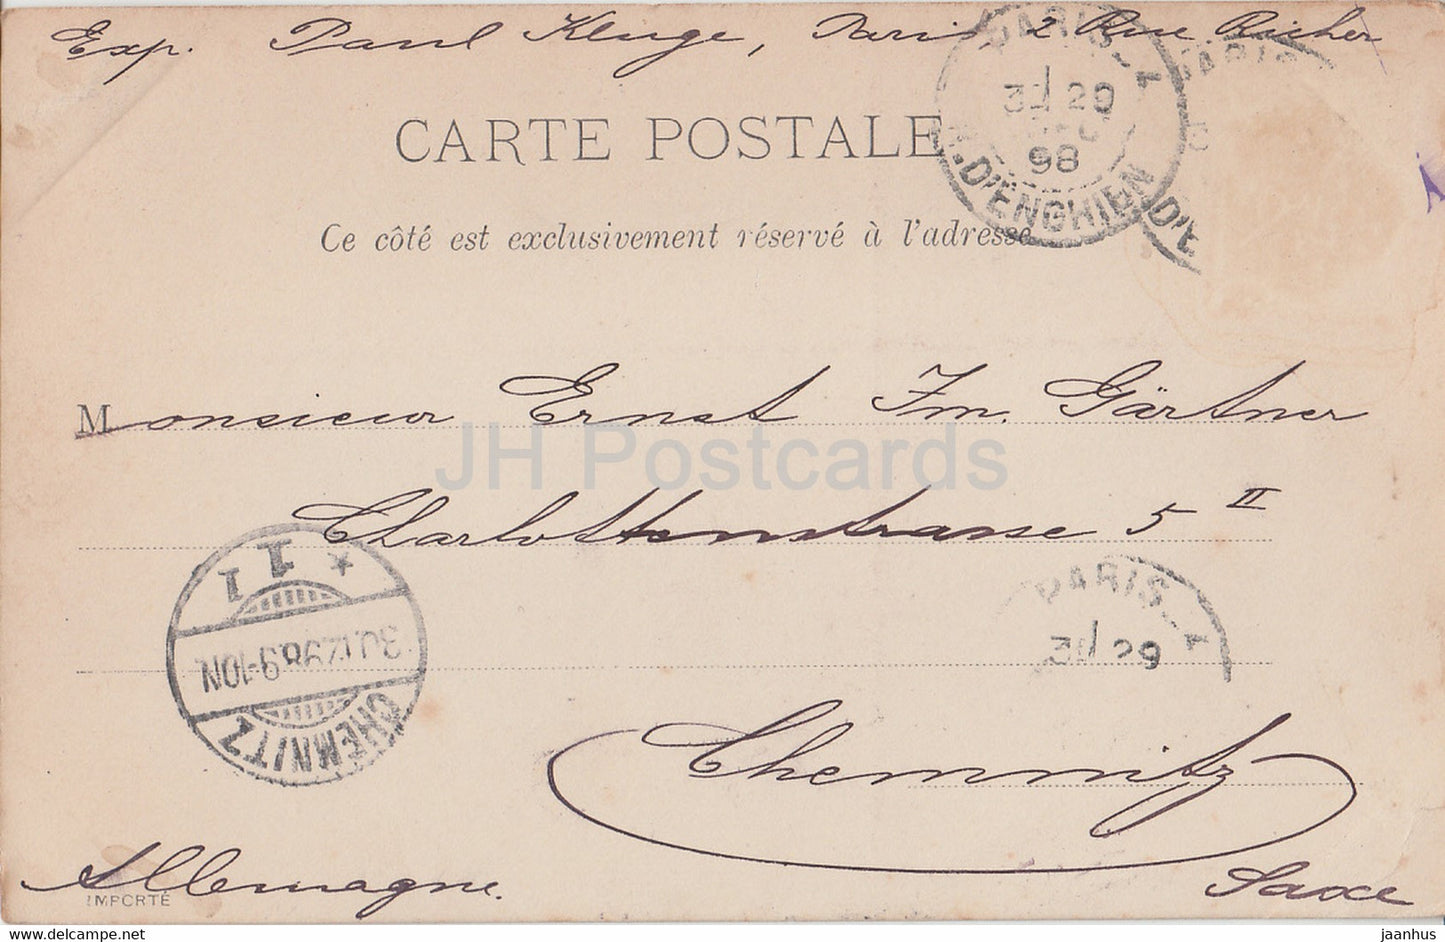 Exp. Paul Kluge, Paris 2 Rue Richer
PARIS_4
3E 29
98
R.D'ENGHIEN
PARIS
D'E
CARTE POSTALE
Ce côté est exclusivement réservé à l'adresse
Monsieur Ernst Im. Gärtner
JH Postcards
Charlottenstrasse 5 II
1 1 *
30.12.98.9-10N
CHEMNITZ
PARIS_4
3E 29
Chemnitz
Allemagne.
Saxe
IMPORTÉ
www.delcampe.net
jaanhus